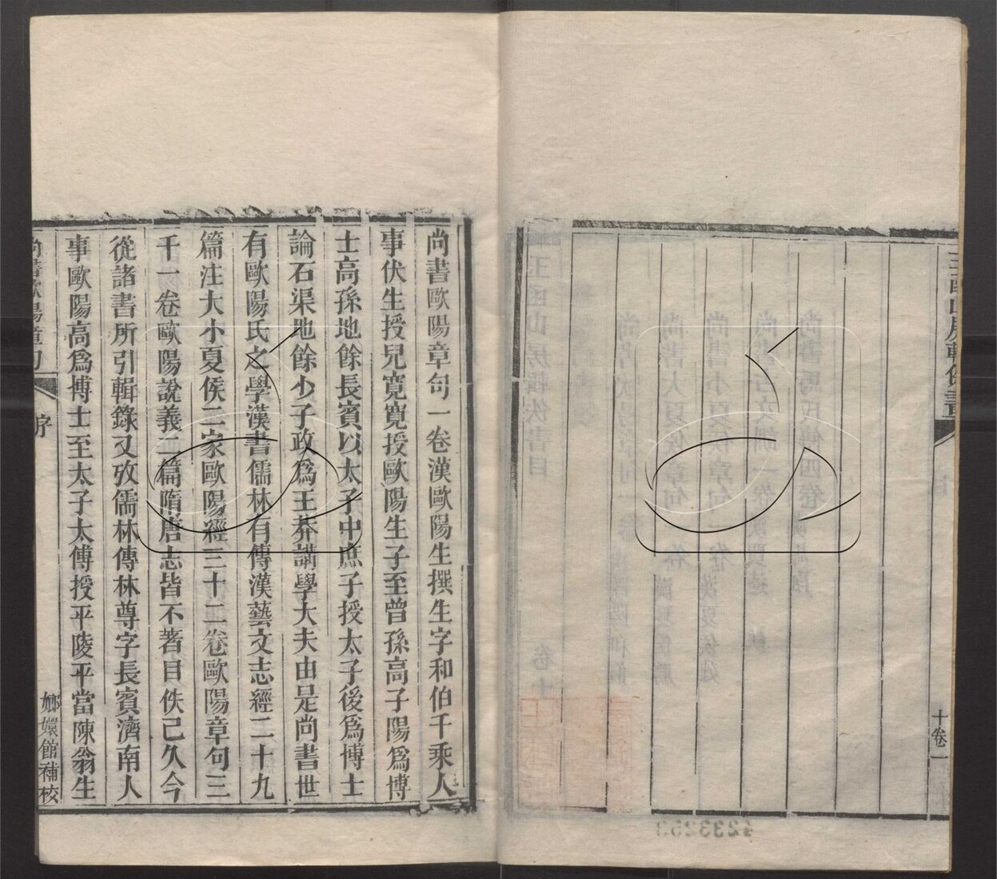 尚書歐陽章句一卷漢歐陽生撰生字和伯千乘人
事伏生授兒寬寬授歐陽生子至曾孫高子陽爲博
士高孫地餘長賓以太子中庶子授太子後爲博士
論石渠地餘少子政爲王莽講學大夫由是尚書世
有歐陽氏之學漢書儒林有傳漢藝文志經二十九
篇注大小夏侯二家歐陽經三十二卷歐陽章句三
十一卷歐陽說義二篇隋唐志皆不著目佚已久今
從諸書所引輯錄又攷儒林傳林尊字長賓濟南人
事歐陽高爲博士至太子太傅授平陵平當陳翁生
尚書歐陽章句
序
嫏嬛館補校
玉函山房輯佚書
十卷一